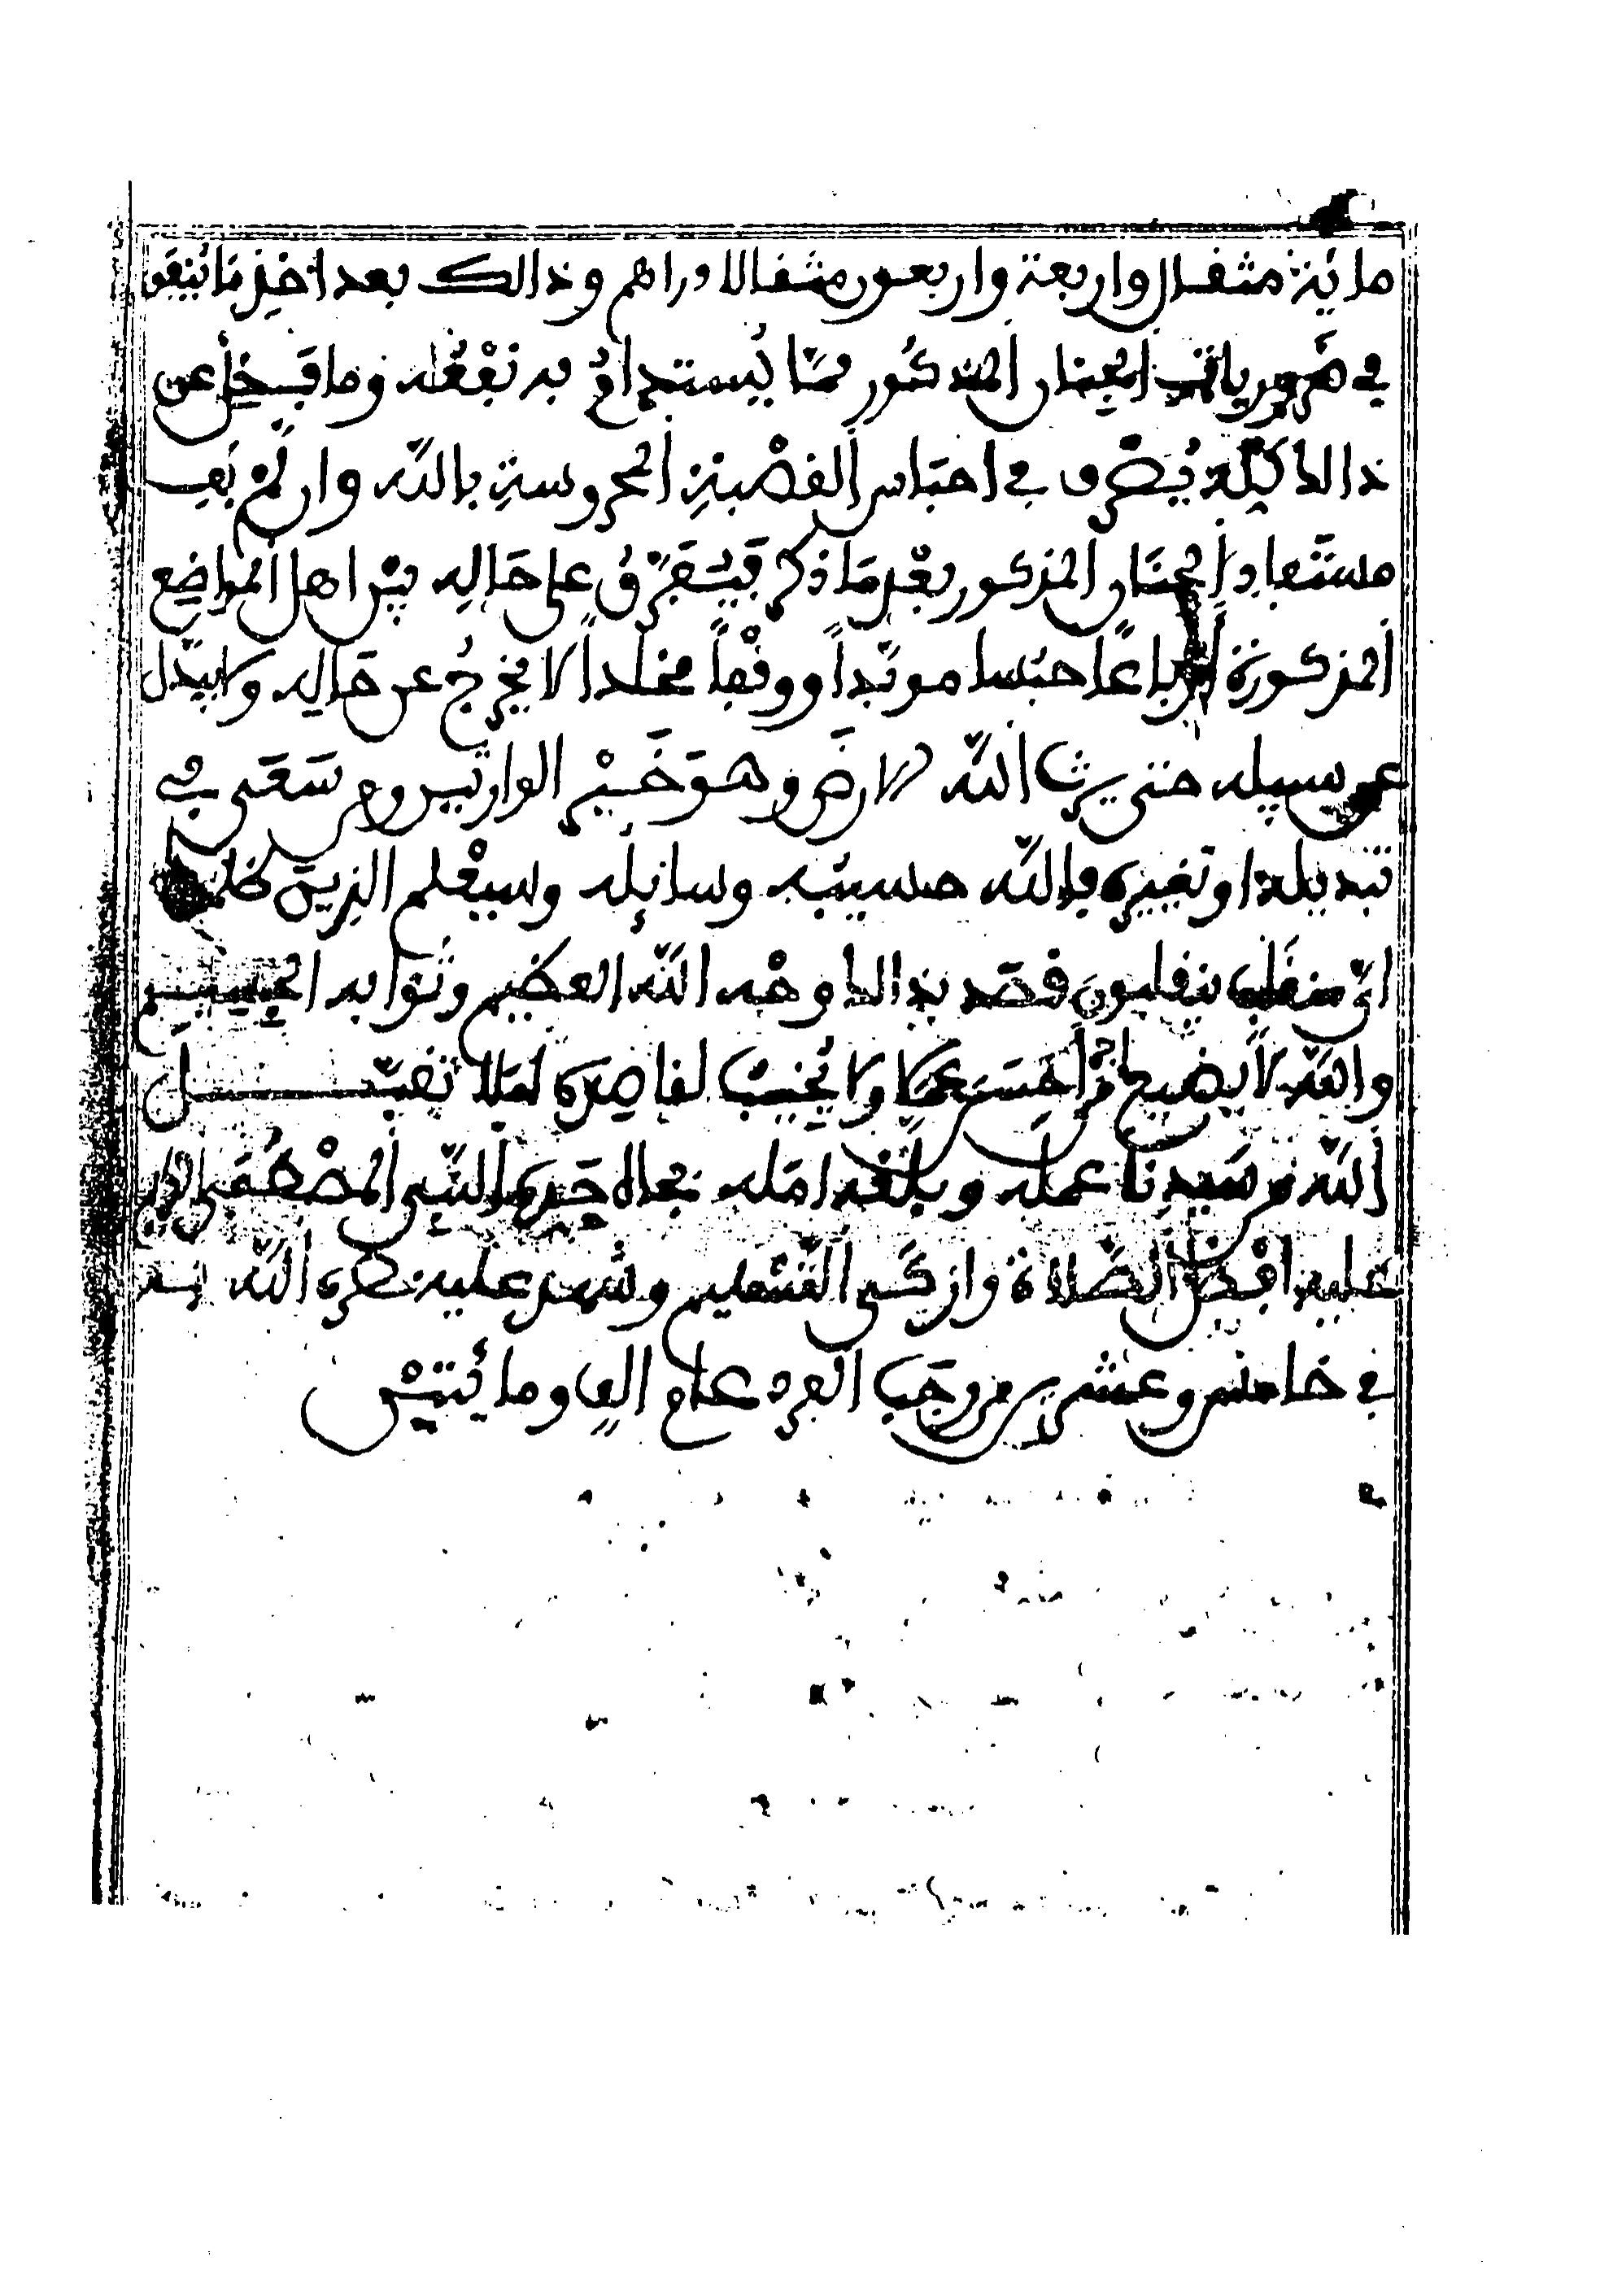 مائة مثقال واربعة واربعون مثقالا دراهم وذالك بعد اخذ ما ينفق
في ضروريات الجنان المذكور مما يستدام به نفعه وما فضل عن
ذالك كله يصرف في احباس القصبة المحروسة بالله وان لم يف
مستفاد الجنان المذكور بعد ما ذكر فيفرق على حاله بين اهل المواضع
المذكورة ارباعا حبسا مؤبدا ووقفا مخلدا لا يخرج عن حاله ولا يبدل
عن سبيله حتى يرث الله الارض وهو خير الوارثين ومن سعى في
تبديله او تغييره فالله حسيبه وسائله وسيعلم الذين ظلموا
اي منقلب ينقلبون قصد بذالك وجه الله العظيم وثوابه الجسيم
والله لا يضيع من احسن عملا ولا يخيب لقاصده املا تقبل
الله من سيدنا عمله وبلغه امله بجاه جده النبي المصطفى
عليه افضل الصلاة وازكى التسليم وشهد عليه نصره الله
في خامس وعشرين من رجب الفرد عام الف ومائتين